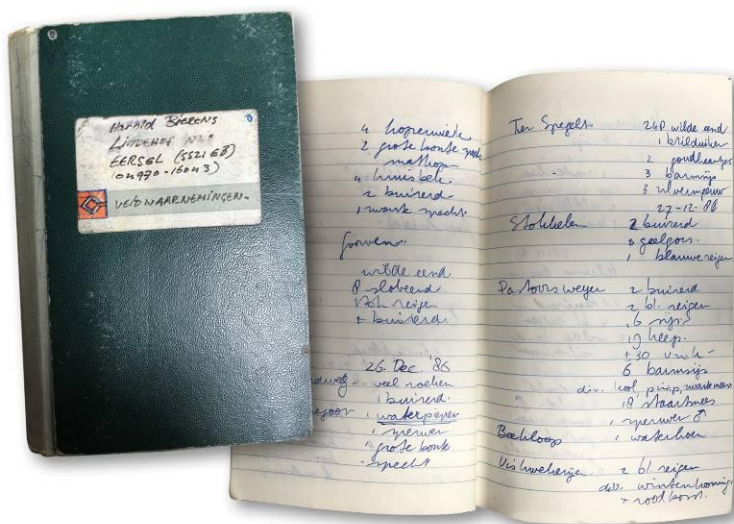 Harald Bierens
LINDEHOF
EERSEL (5521 EB)
04970-16043)
VELDWAARNEMINGEN.
4 koperwiek
2 grote bonte specht
matkop
4 kruisbek.
2 buizerd
1 zwarte specht
wilde eend
8 slobeend
reiger
buizerd.
26 Dec. '86
veel roeken
1 buizerd.
1 waterpieper
1 sperwer
grote bonte
specht
Ten Spegelt 248 wilde eend
1 brilduiker
2 goudhaantjes
3 barmsijs
3 zilvermeeuw
27-12-86
2 buizerd
3 geelgors.
1 blauwe reiger
Pastoorsweijer 2 buizerd
2 bl. reiger
6 sijs
19 keep.
±30 vink
6 barmsijs
div. kool, pimp, zwarte mees
18 staartmees
1 sperwer ♂
Beekloop 1 waterhoen
2 bl. reiger
div. winterkoning
+ roodborst.